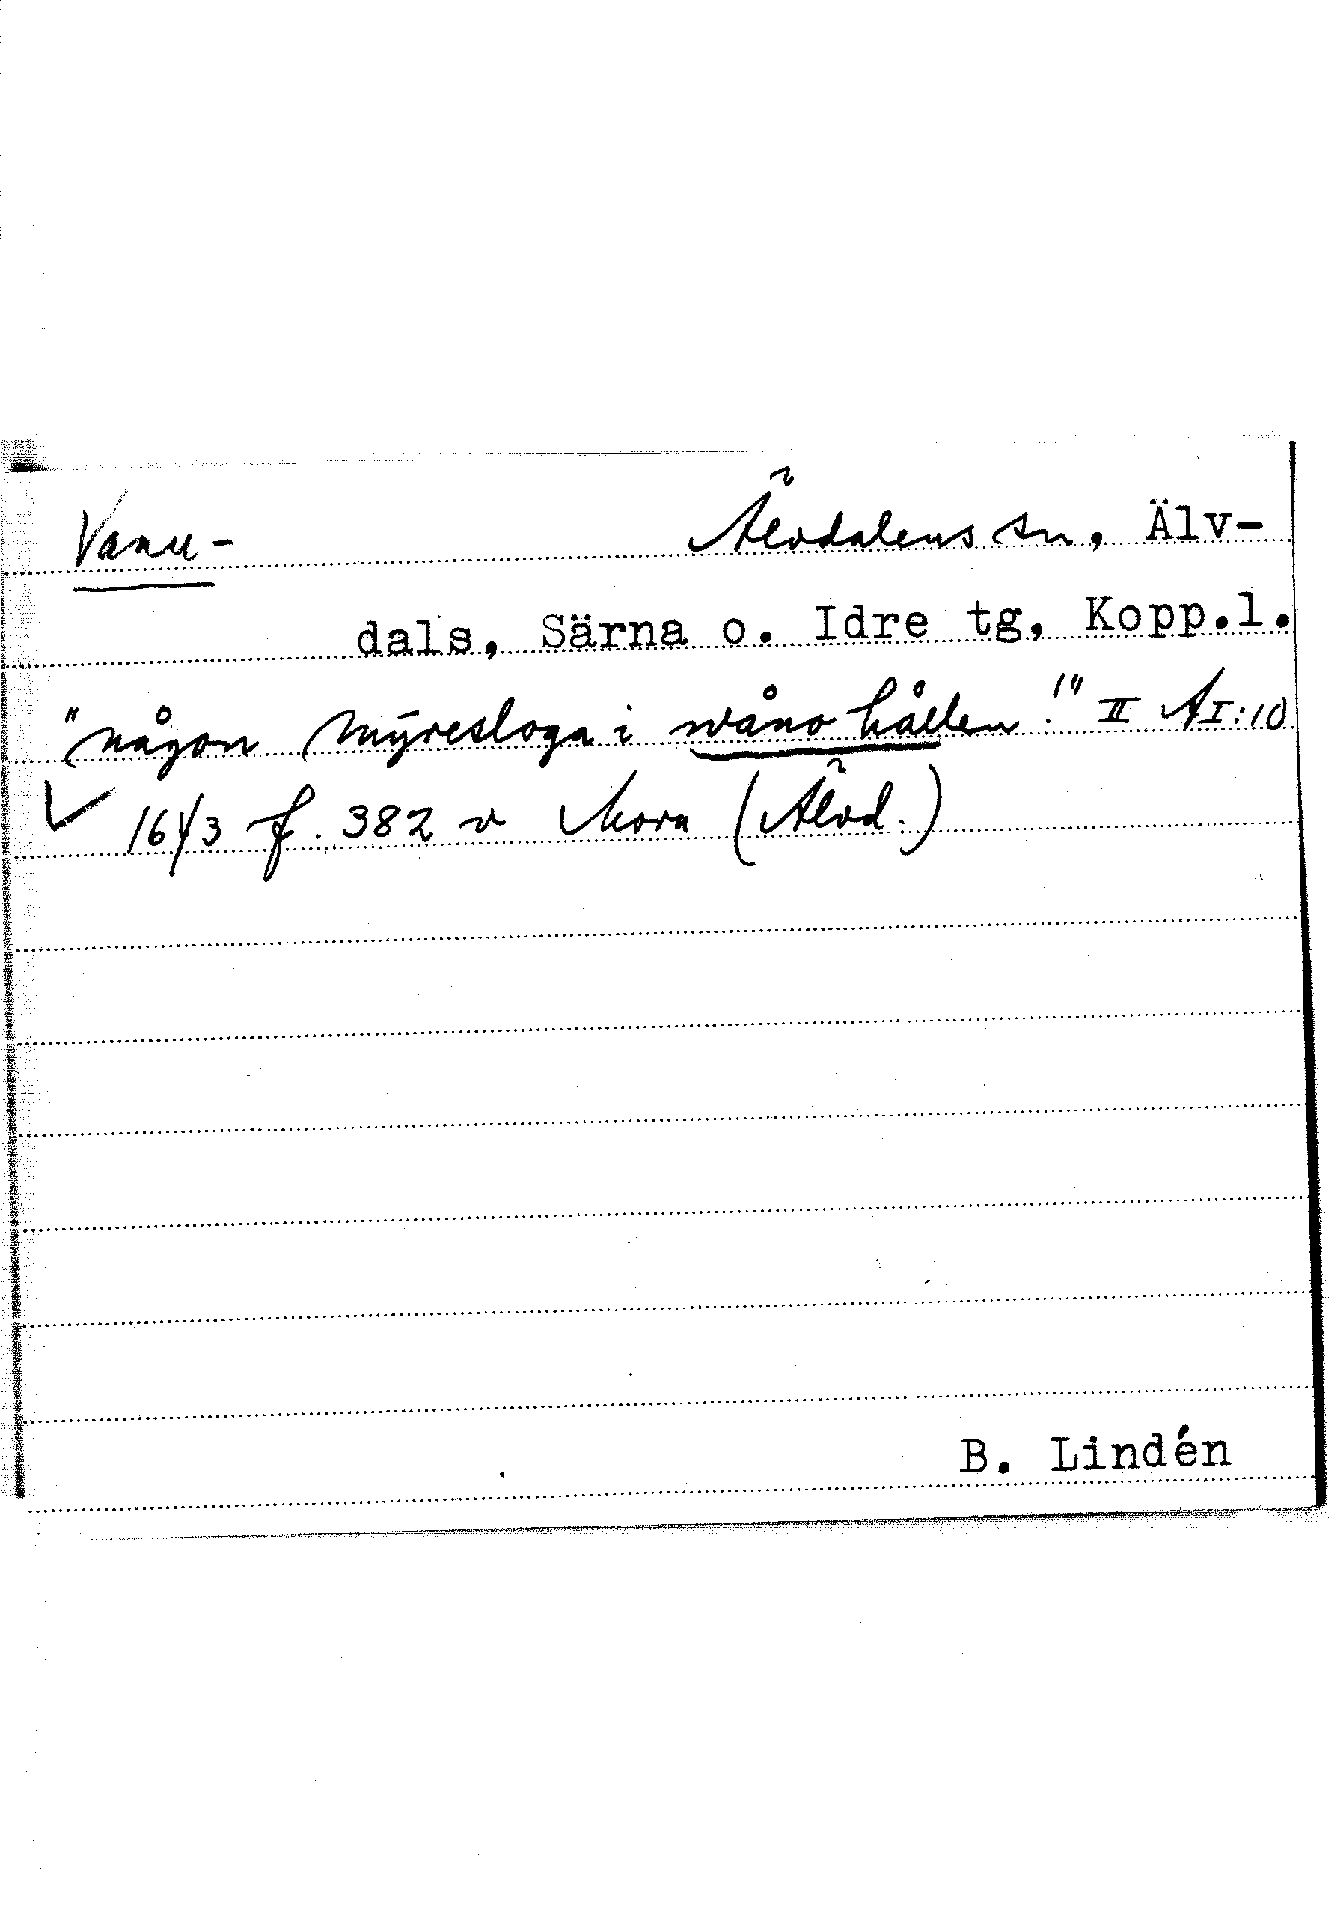 Vanu- Älvdalens sn, Älv-
dals, Särna o. Idre tg, Kopp.l.
"någon Mÿresloga i wåno hållen!" II AI:10
1643 f. 382 v Mora (Älvd.)
B. Lindén